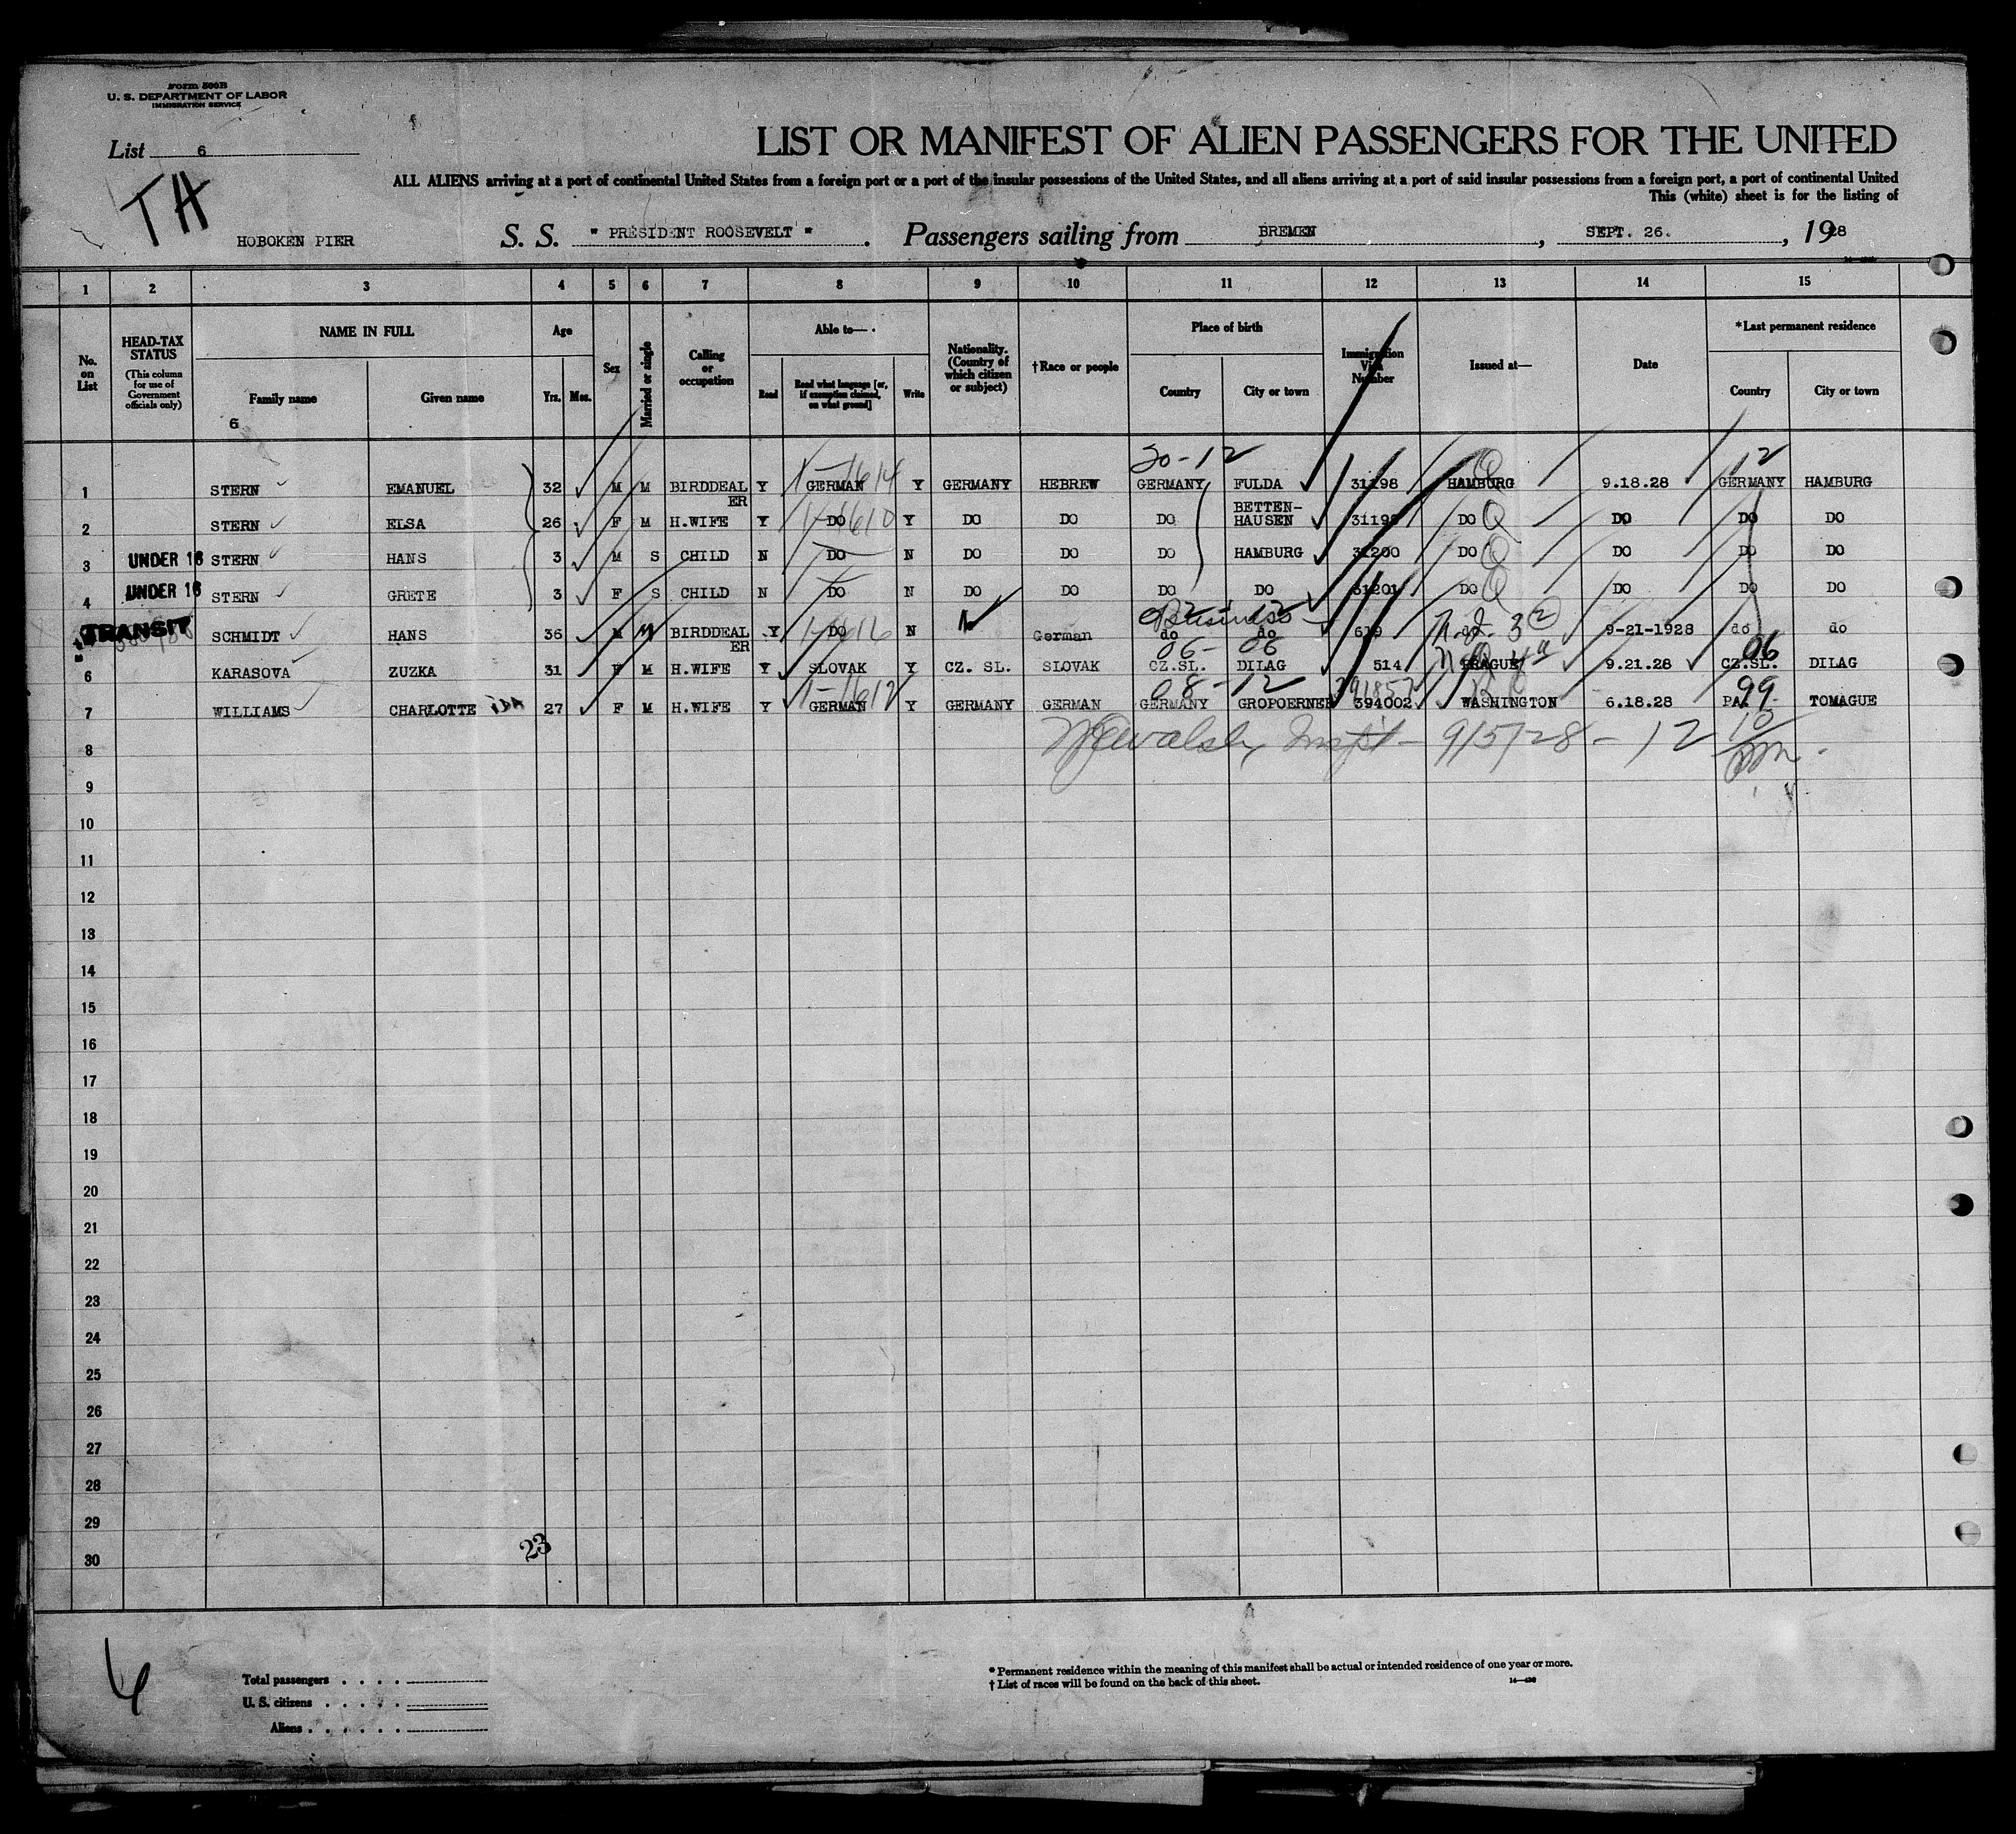 Form 500B
U. S. DEPARTMENT OF LABOR
IMMIGRATION SERVICE
List 6
TA
LIST OR MANIFEST OF ALIEN PASSENGERS FOR THE UNITED
ALL ALIENS arriving at a port of continental United States from a foreign port or a port of the insular possessions of the United States, and all aliens arriving at a port of said insular possessions from a foreign port, a port of continental United
This (white) sheet is for the listing of
HOBOKEN PIER S. S. " PRESIDENT ROOSEVELT " . Passengers sailing from BREMEN , SEPT. 26. , 1928
1 2 3 4 5 6 7 8 9 10 11 12 13 14 15
No. on List
HEAD-TAX STATUS (This column for use of Government officials only)
NAME IN FULL
Family name
Given name
6
Age
Yrs. Mos.
Sex
Married or single
Calling or occupation
Able to—
Read
Read what language [or, if exemption claimed, on what ground]
Write
Nationality. (Country of which citizen or subject)
†Race or people
Place of birth
Country
City or town
Immigration Visa Number
Issued at—
Date
*Last permanent residence
Country
City or town
30-12 12
1 STERN EMANUEL 32 M M BIRDDEALER Y GERMAN Y GERMANY HEBREW GERMANY FULDA 31198 HAMBURG 9.18.28 GERMANY HAMBURG
2 STERN ELSA 26 F M H.WIFE Y DO Y DO DO DO BETTEN-HAUSEN 31199 DO DO DO DO
3 UNDER 16 STERN HANS 3 M S CHILD N DO N DO DO DO HAMBURG 31200 DO DO DO DO
4 UNDER 16 STERN GRETE 3 F S CHILD N DO N DO DO DO DO 31201 DO DO DO DO
Business
TRANSIT SCHMIDT HANS 36 M M BIRDDEALER Y DO N German do do 619 do 3 2 9-21-1928 do do
06-06 06
6 KARASOVA ZUZKA 31 F M H.WIFE Y SLOVAK Y CZ. SL. SLOVAK CZ.SL. DILAG 514 PRAGUE 9.21.28 CZ.SL. DILAG
08-12 391857 99
7 WILLIAMS CHARLOTTE IDA 27 F M H.WIFE Y GERMAN Y GERMANY GERMAN GERMANY GROPOERNER 394002 WASHINGTON 6.18.28 PA. TOMAGUE
8 Walsh 9/5/28 - 12 10 pm
9
10
11
12
13
14
15
16
17
18
19
20
21
22
23
24
25
26
27
28
29
30
23
6
Total passengers
U. S. citizens
Aliens
* Permanent residence within the meaning of this manifest shall be actual or intended residence of one year or more.
† List of races will be found on the back of this sheet.